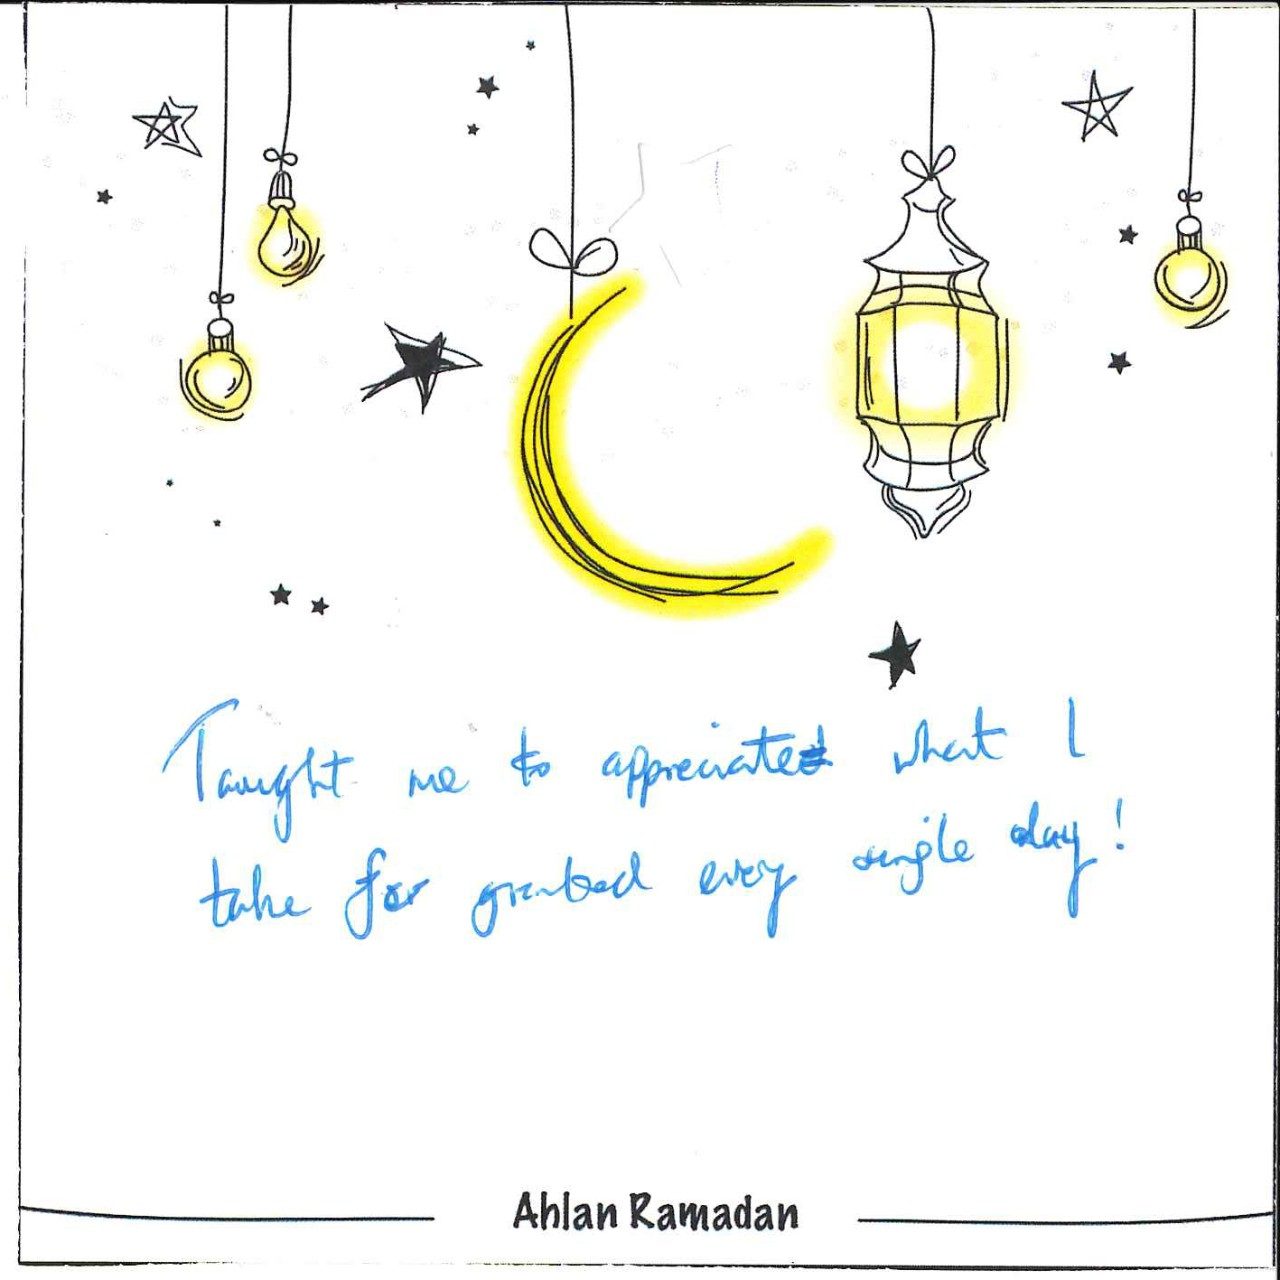 Taught me to appreciate what I
take for granted every single day!
Ahlan Ramadan